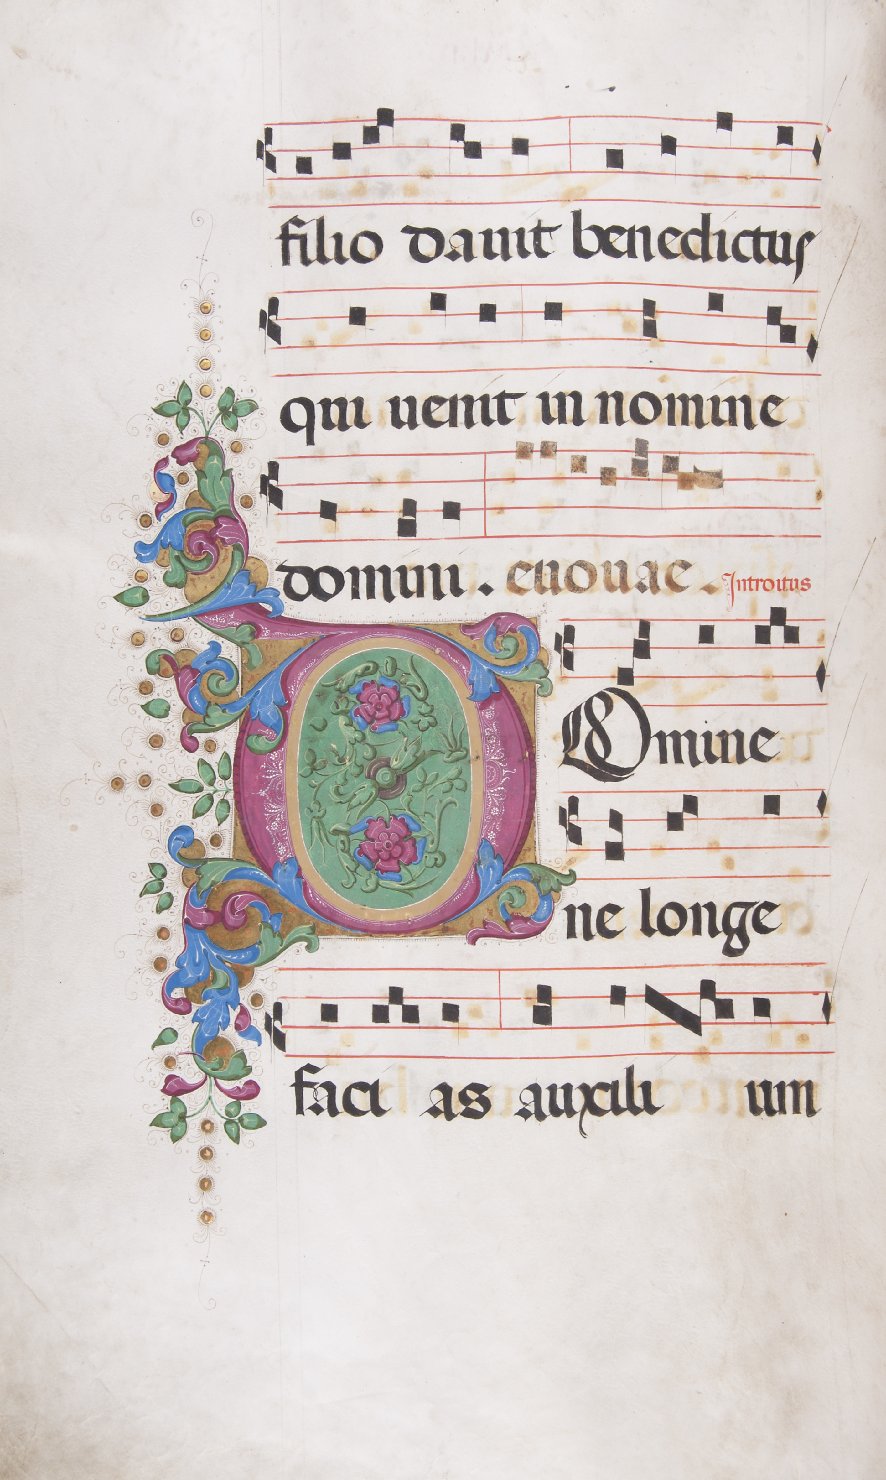 filio davit benedictus
qui venit in nomine
domini . evovae . Introitus
Domine
ne longe
faci as auxili um